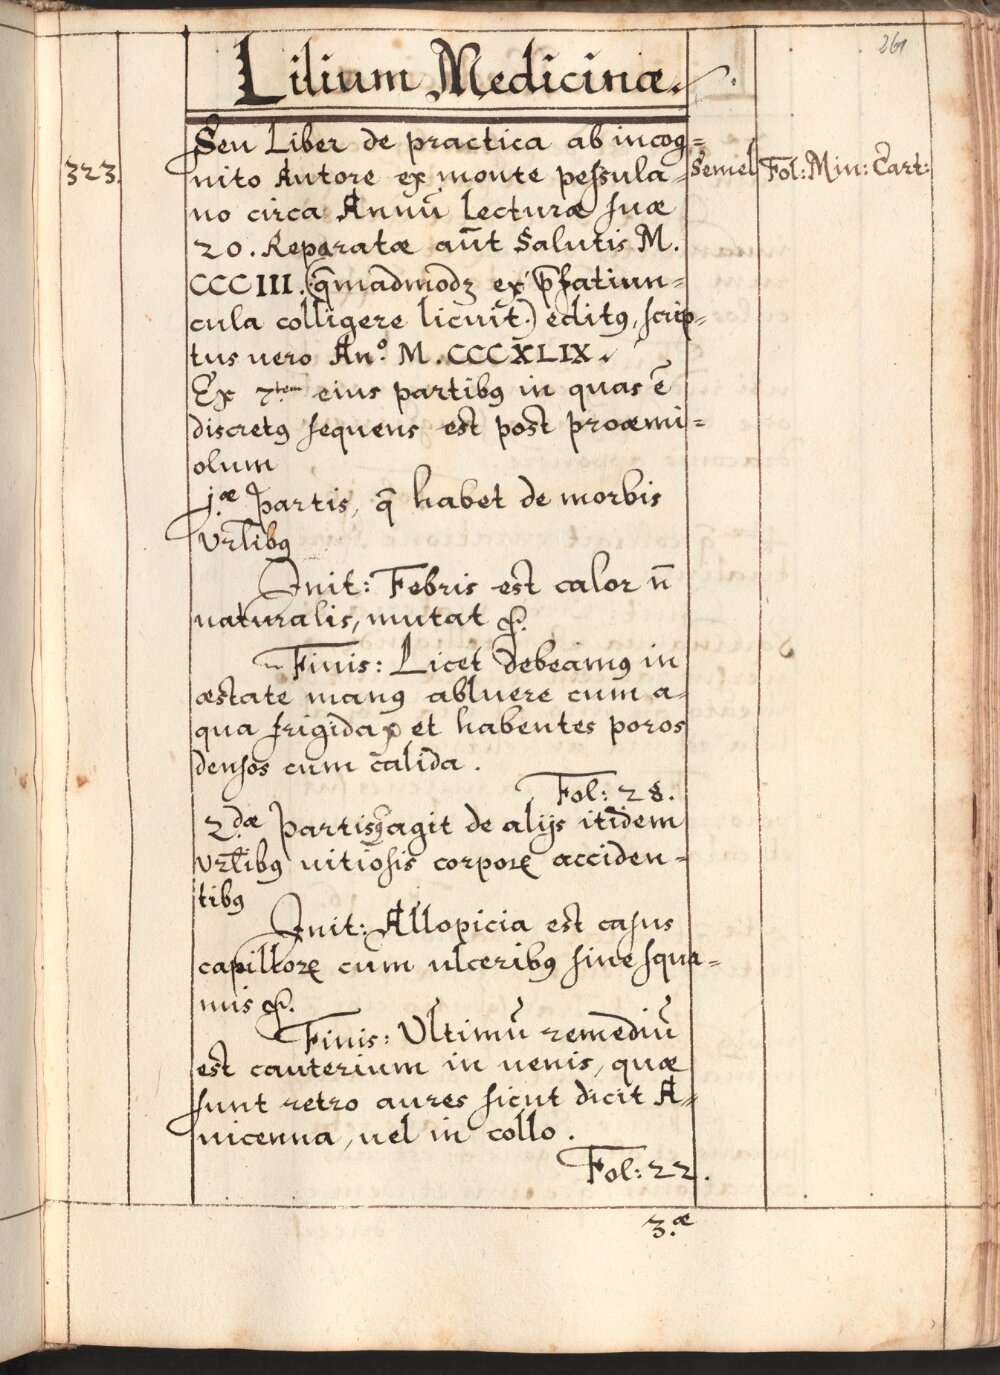 261
Lilium Medicinæ.
Seu Liber de practica ab incog=
323. nito Autore ex monte pessula= Semel Fol: Min: Cart:
no circa Annū lecturæ suæ
20. Reparatæ aūt Salutis M.
CCCIII. (q̄madmodꝫ ex p̄fatiun=
cula colligere licuit.) editꝰ, scrip=
tus vero An.º M.CCCXLIX.
Ex 7.tem eius partibꝰ in quas ē
discretꝰ sequens est post proœmi=
olum
j.æ Partis, q̄ habet de morbis
vr̄libꝰ
Init: Febris est calor n̄
naturalis, mutat &.
Finis: Licet debeamꝰ in
æstate manꝰ abluere cum a=
qua frigida, et habentes poros
densos cum calida.
Fol: 28.
2.dæ Partis, q̄ agit de alijs itidem
vr̄libꝰ vitiosis corporꝝ acciden=
tibꝰ
Init: Allopicia est casus
capillorꝝ cum ulceribꝰ sine squa=
mis &.
Finis: Ultimū remediū
est cauterium in venis, quæ
sunt retro aures sicut dicit A=
vicenna, vel in collo.
Fol: 22.
3.æ